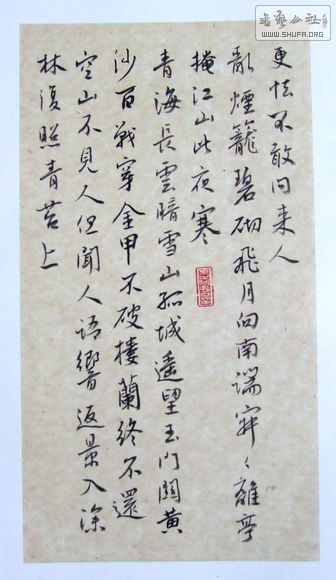 更怯不敢问来人
亂煙籠碧砌飛月向南端寂々離亭
掩江山此夜寒
青海長雲暗雪山孤城遥望玉門關黄
沙百戰穿金甲不破樓蘭終不還
空山不見人但聞人語響返景入深
林復照青苔上
書藝公社
WWW.SHUFA.ORG